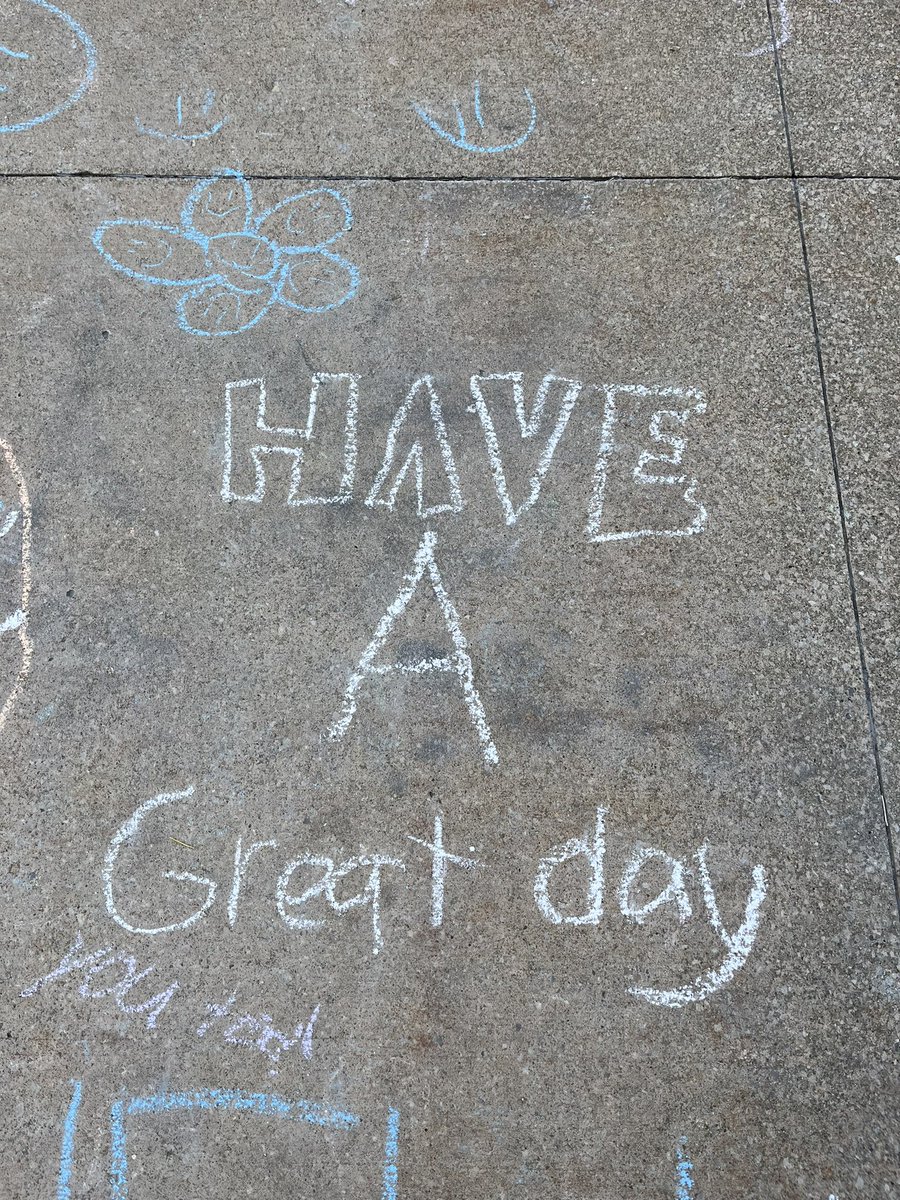 HAVE
A
Great day
you too!